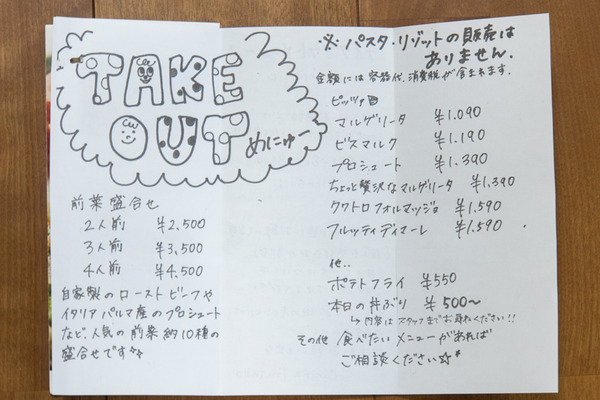 TAKE
OUT めにゅー
前菜盛合せ
2人前 ¥2,500
3人前 ¥3,500
4人前 ¥4,500
自家製のローストビーフや
イタリアパルマ産のプロシュート
など、人気の前菜約10種の
盛合せです☆
※パスタ・リゾットの販売は
ありません.
金額には容器代、消費税が含まれます.
ピッツァ
マルゲリータ ¥1.090
ビスマルク ¥1.190
プロシュート ¥1.390
ちょっと贅沢なマルゲリータ ¥1.390
クワトロフォルマッジョ ¥1.590
フルッティディマーレ ¥1.590
他..
ポテトフライ ¥550
本日の丼ぶり ¥500〜
↳内容はスタッフまでお尋ねください!!
その他 食べたいメニューがあれば
ご相談ください☆*